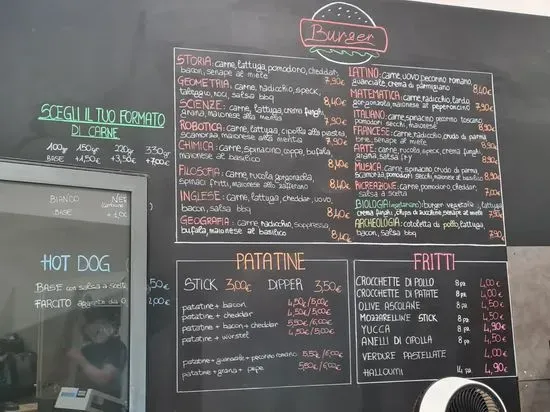 Burger
STORIA: carne, lattuga, pomodoro, cheddar,
bacon, senape al miele 7,90€
GEOMETRIA: carne, radicchio, speck,
taleggio, noci, salsa bbq 8,40€
SCIENZE: carne, lattuga, crema funghi,
grana, maionese alla menta 7,90€
ROBOTICA: carne, lattuga, cipolla alla piastra,
scamorza, maionese alla menta 7,90€
CHIMICA: carne, spinacino, coppa, bufala,
maionese al basilico 8,40€
FILOSOFIA: carne, rucola, gorgonzola,
spinaci fritti, maionese allo zafferano 8,40€
INGLESE: carne, lattuga, cheddar, uovo,
bacon, salsa bbq 8,40€
GEOGRAFIA: carne, radicchio, soppressa,
bufala, maionese al basilico 8,40€
LATINO: carne, uovo, pecorino romano,
guanciale, crema di parmigiano 8,40€
MATEMATICA: carne, radicchio, lardo,
gorgonzola, maionese al peperoncino 7,90€
ITALIANO: carne, spinacino, pecorino toscano,
pomodori secchi, maionese 8,40€
FRANCESE: carne, radicchio, crudo di parma,
brie, senape al miele 7,90€
ARTE: carne, rucola, speck, crema funghi,
grana, salsa 7,90€
MUSICA: carne, spinacino, crudo di parma,
scamorza, pomodori secchi, maionese al basilico 8,40€
RICREAZIONE: carne, pomodoro, cheddar,
salsa a scelta 7,90€
BIOLOGIA (vegetariano): burger vegetale, lattuga,
crema funghi, chips di zucchine, senape al miele 7,90€
ARCHEOLOGIA: cotoletta di pollo, lattuga,
bacon, salsa bbq 7,90€
SCEGLI IL TUO FORMATO
DI CARNE
100gr 150gr 220gr 330gr
BASE +1,50€ +3,50€ +7,00€
BIANCO NERO
BASE + 1,00€
HOT DOG
BASE con salsa a scelta
FARCITO
PATATINE
STICK 3,00€ DIPPER 3,50€
patatine + bacon 4,50€/5,00€
patatine + cheddar 4,50€/5,00€
patatine + bacon + cheddar 5,50€/6,00€
patatine + wurstel 4,50€/5,00€
patatine + guanciale + pecorino romano 5,50€/6,00€
patatine + grana + pepe 5,50€/6,00€
FRITTI
CROCCHETTE DI POLLO 8 pz. 4,00€
CROCCHETTE DI PATATE 8 pz. 4,00€
OLIVE ASCOLANE 8 pz. 4,00€
MOZZARELLINE STICK 8 pz. 4,50€
YUCCA 8 pz. 4,90€
ANELLI DI CIPOLLA 8 pz. 4,50€
VERDURE PASTELLATE 4,00€
HALLOUMI 14 pz. 4,90€